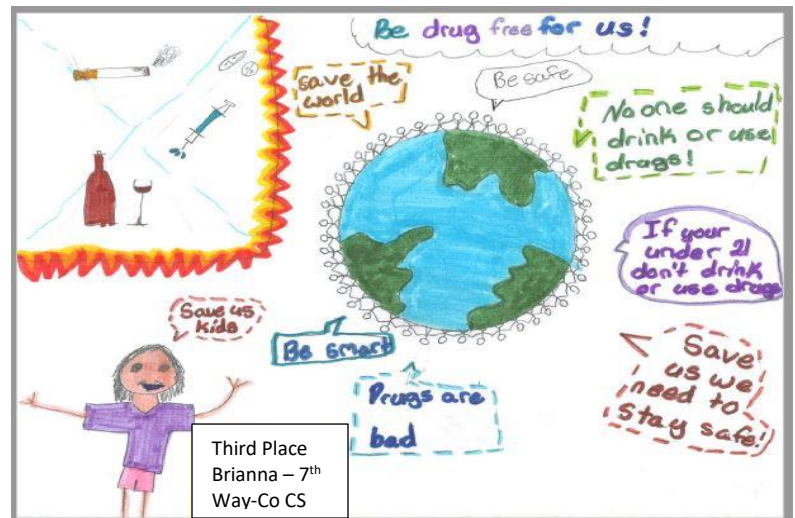 Be drug free for us!
save the
world
Be safe
No one should
drink or use
drags!
If your
under 21
don't drink
or use drugs
Save us
kids
Be smart
Drugs are
bad
Save
us we
need to
Stay safe!
Third Place
Brianna – 7th
Way-Co CS